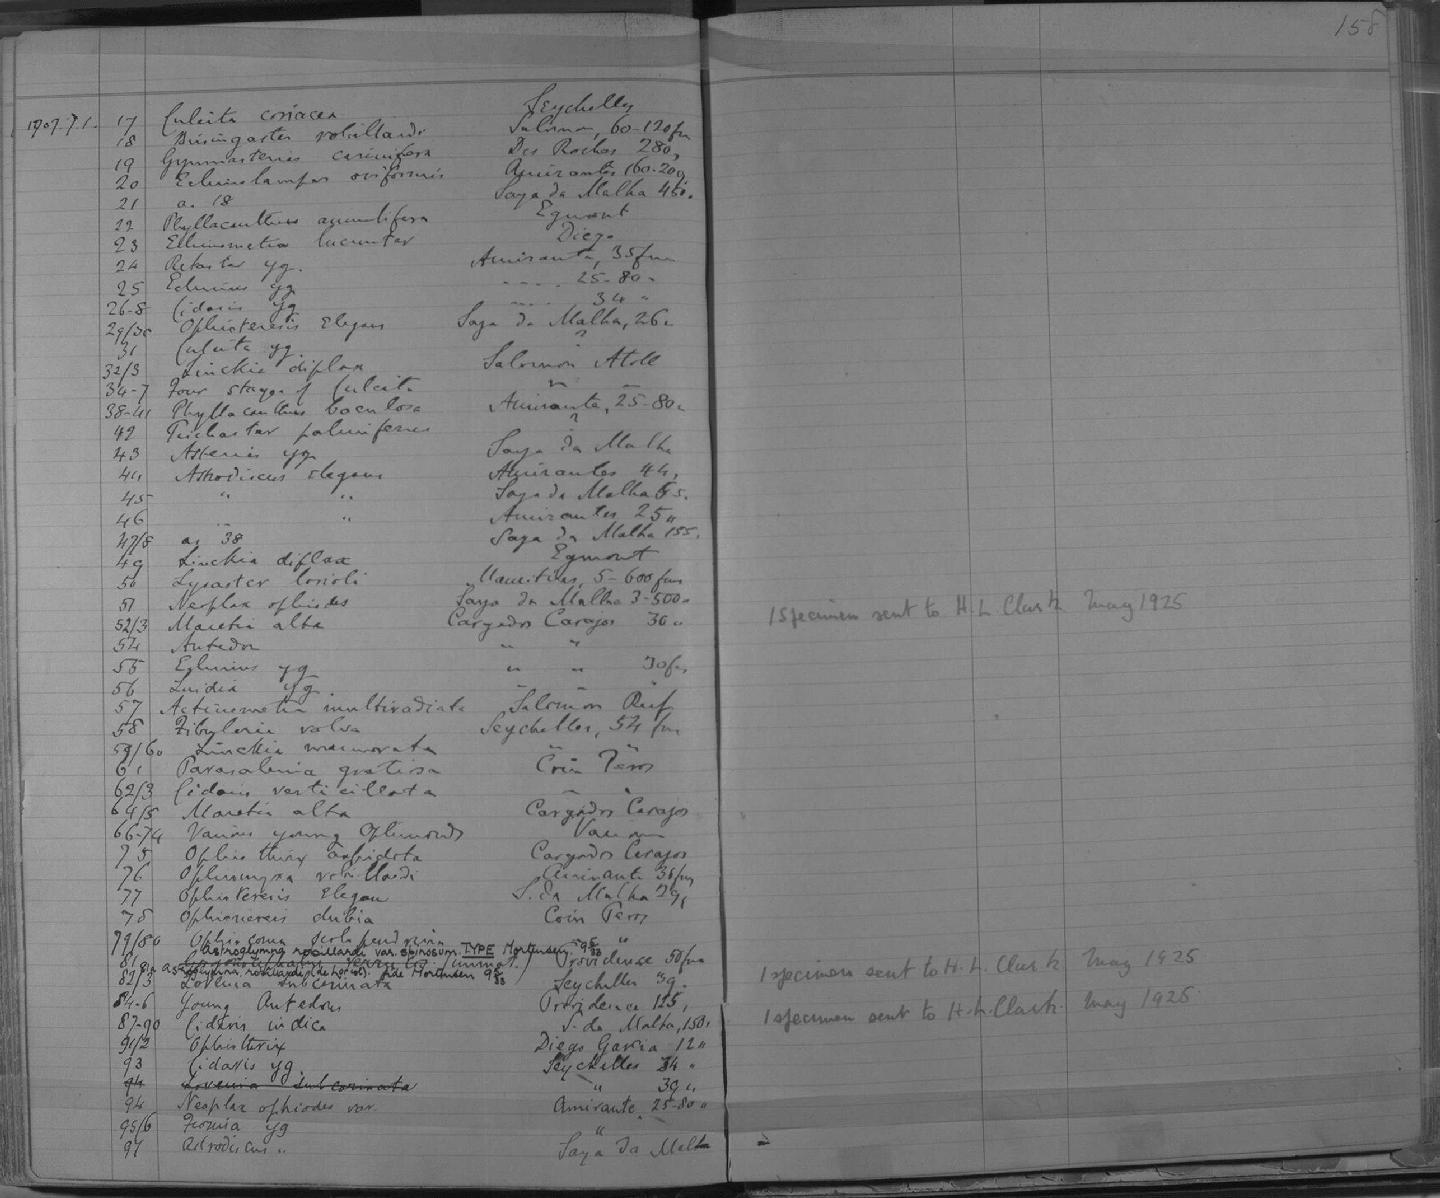 158
1909.7.1. 17 Culcita coriacea Seychelles
18 robillardi Salomon, 60-120 fm
19 Gymnasterias carinifera Des Roches 280,
20 Echinolampas oviformis Amirantes 160-20
21 as 18 Saya da Malha 450.
22 Phyllacanthus annulifera Egmont
23 Echinometra lucunter Diego
24 Retaster yg. Amirante, 35 fm
25 Echinus yg 25-80 "
26-8 Cidaris yg 34 "
29/30 Ophioteresis Elegans Saya da Malha, 26
31 Culcita yg. ?
32/3 Linckia diplax Salomon Atoll
34-7 Four stages of Culcita "
38-41 Phyllacanthus baculosa Amirante, 25-80
42 Trichaster palmiferus ?
43 Asterias yg Saya da Malha
44 Astrodiscus elegans Amirantes 44,
45 " " Saya da Malha
46 " " Amirantes 25 "
47/8 as 38 Saya da Malha 155.
49 Linckia diplax Egmont
50 Lysaster lorioli Mauritius, 5-600 fms
51 Neoplax ophiodes Saya da Malha 3-500
52/3 Maretia alta Cargados Carajos 30 " 1 specimen sent to H. L. Clark May 1925
54 Antedon " "
55 Echinus yg " " 30 fm
56 Luidia yg. " " "
57 Actinometra multiradiata Salomon Reef
58 Fibularia volva Seychelles, 54 fm
59/60 Linckia marmorata " "
61 Parasalenia gratiosa Coin Peros
62/3 Cidaris verticillata " "
64/5 Maretia alta Cargados Carajos
66-74 Various young Ophiuroids Various
75 Ophiothrix aspidota Cargados Carajos
76 Ophiomyxa robillardi Amirante 35 fm
77 Ophioteresis Elegans S. da Malha 29,
78 Ophionereis dubia Coin Peros
79/80 Ophiocoma scolopendrina "
Astroglymna robillardi var. spinosum TYPE Mortensen
81 Providence 50 fm
robillardi (de Loriol). fide Mortensen
82/3 Lovenia subcarinata Seychelles 39. 1 specimen sent to H. L. Clark May 1925
84-6 Young Antedons Providence 125,
87-90 Cidaris indica S. da Malha, 150, 1 specimen sent to H. L. Clark. May 1925
91/2 Ophiothrix Diego Garcia 12 "
93 Cidaris yg. Seychelles 34 "
94 Lovenia subcarinata " 39 "
94 Neoplax ophiodes var. Amirante, 25-80 "
95/6 Fromia yg " "
97 Astrodiscus " Saya da Malha